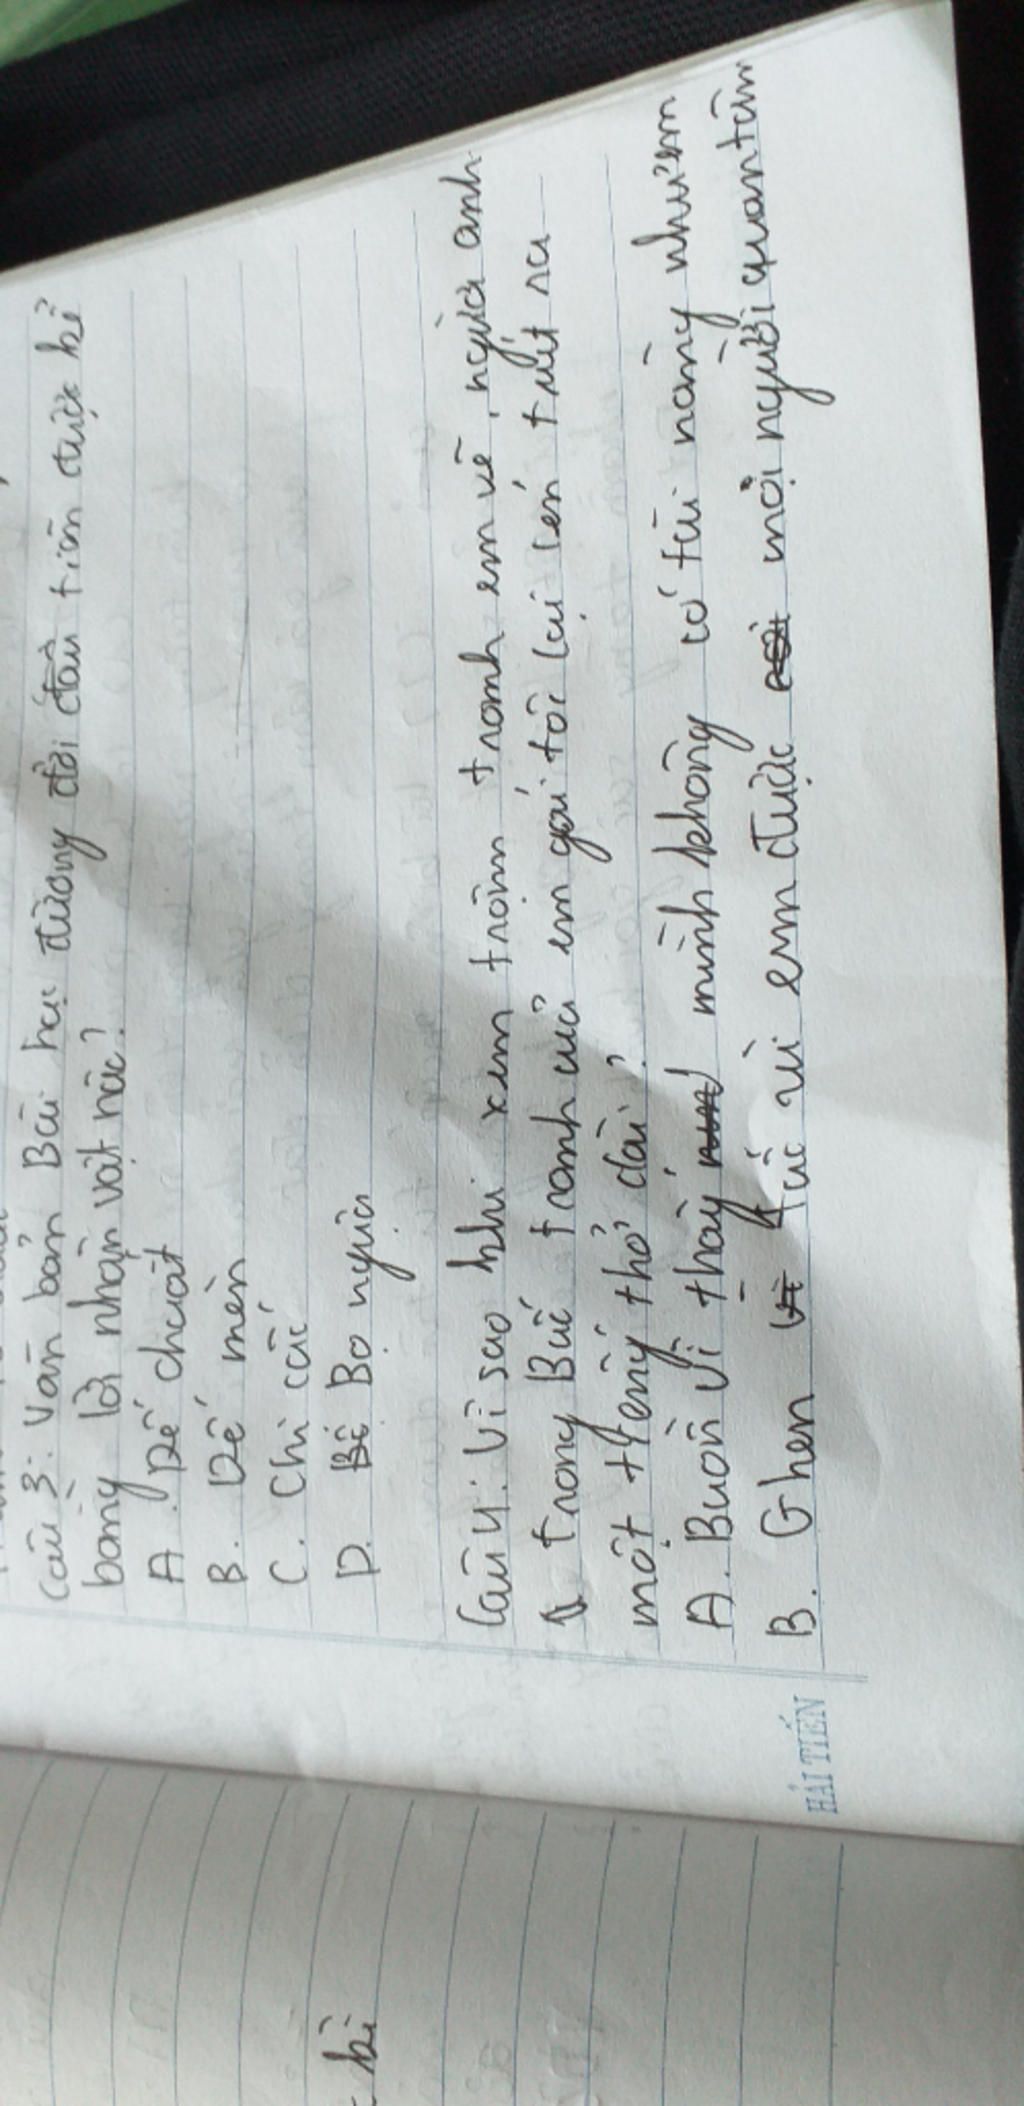 Câu 3: Văn bản Bài học đường đời đầu tiên được kể
bằng lời nhân vật nào?
A. Dế choắt
B. Dế mèn
C. Chị cốc
D. Bọ ngựa
Câu 4: Vì sao khi xem trộm tranh em vẽ, người anh
trong Bức tranh của em gái tôi lại lén trút ra
một tiếng thở dài?
A. Buồn vì thấy mình không có tài năng như em
B. Ghen tức vì em được mọi người quan tâm
HẢI TIẾN